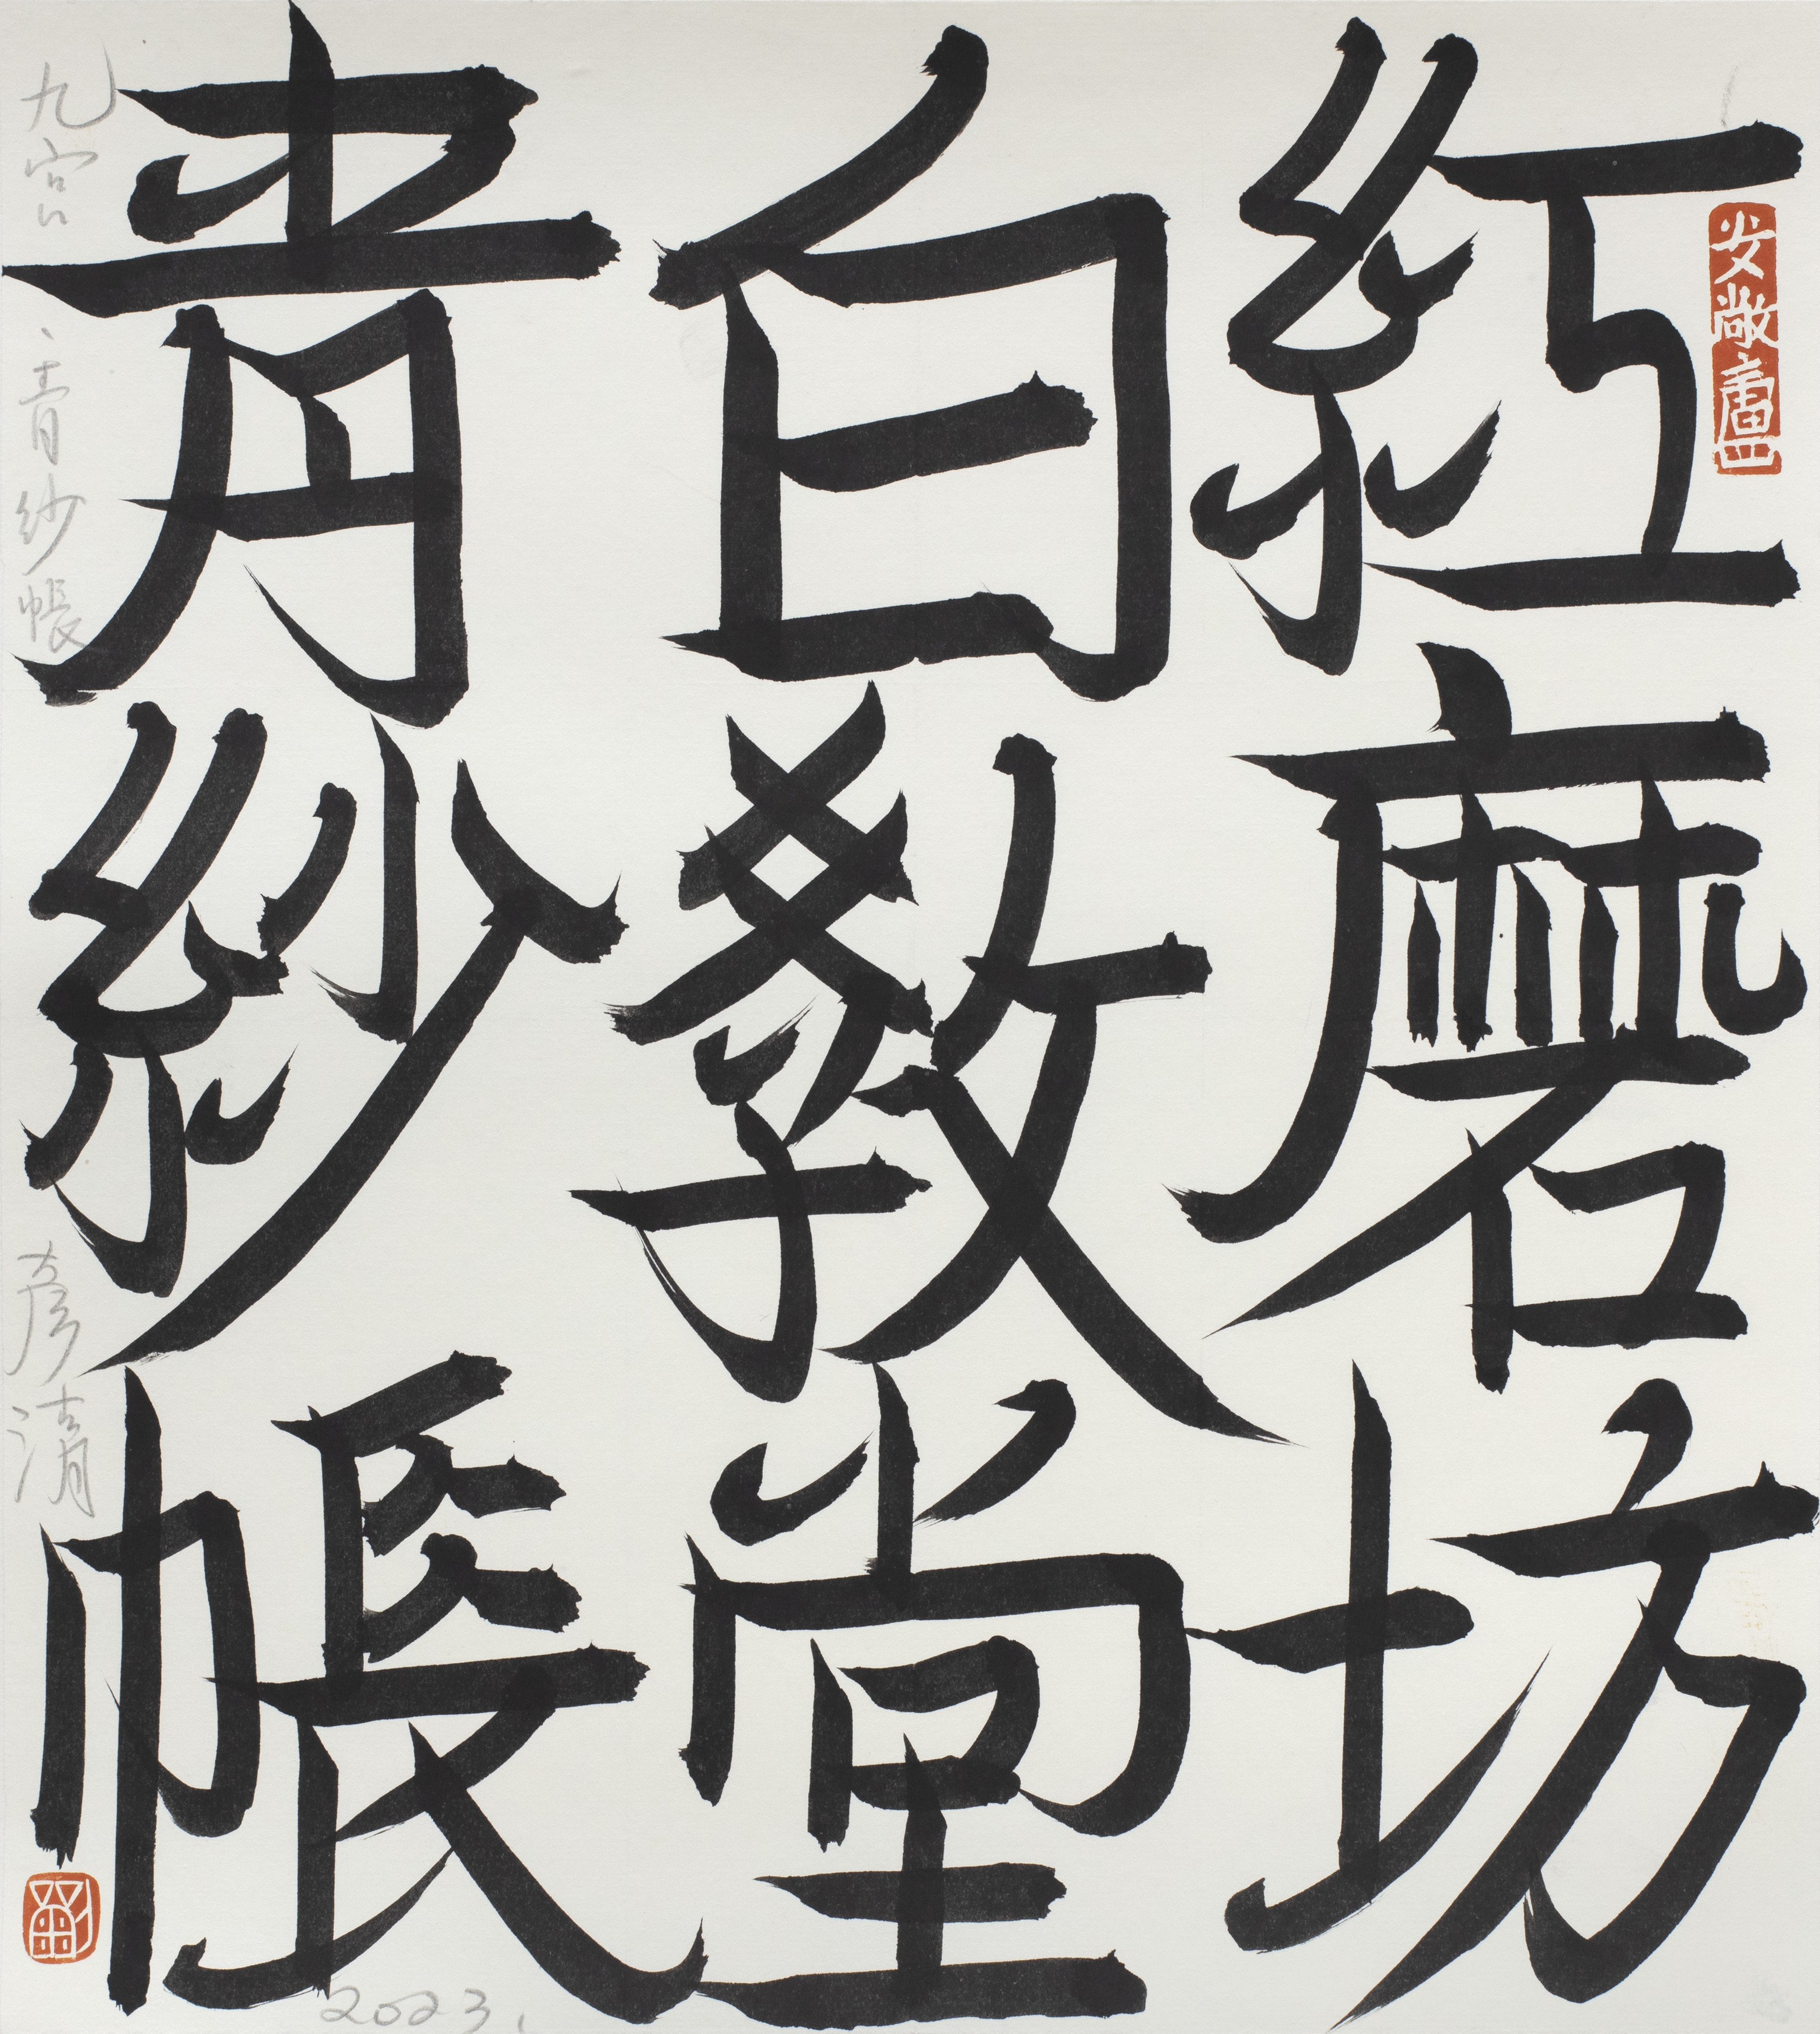 紅磨坊
白教堂
青紗帳
九宮：青紗帳
彥清
2023.